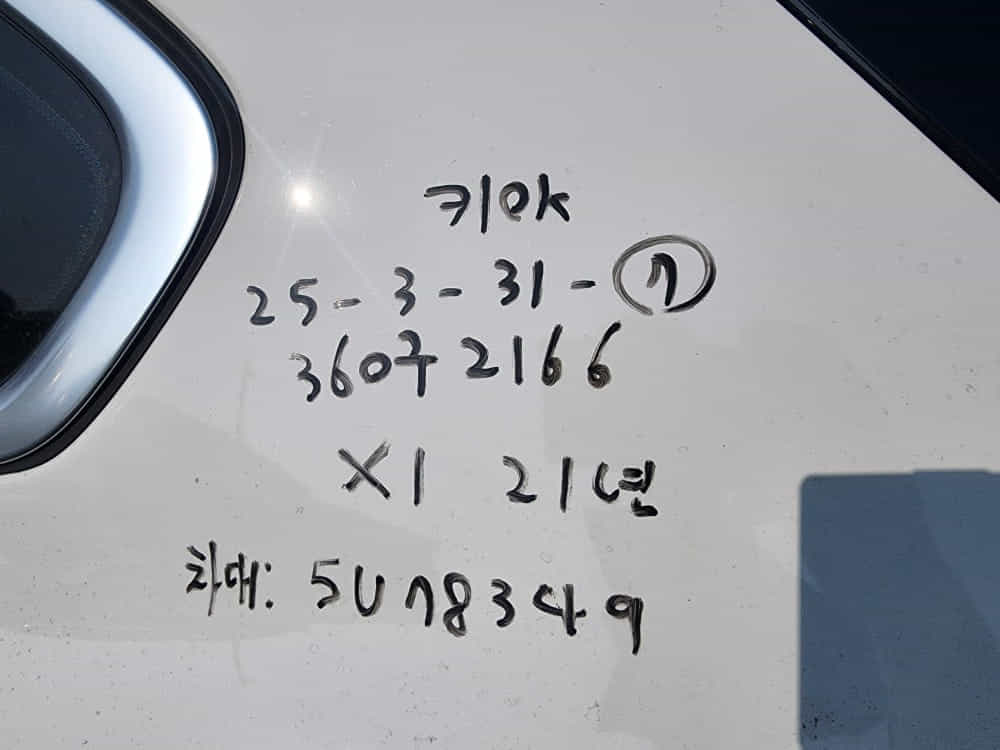 키OK
25-3-31-⑦
360구2166
X1 21년
차대: 5U78349